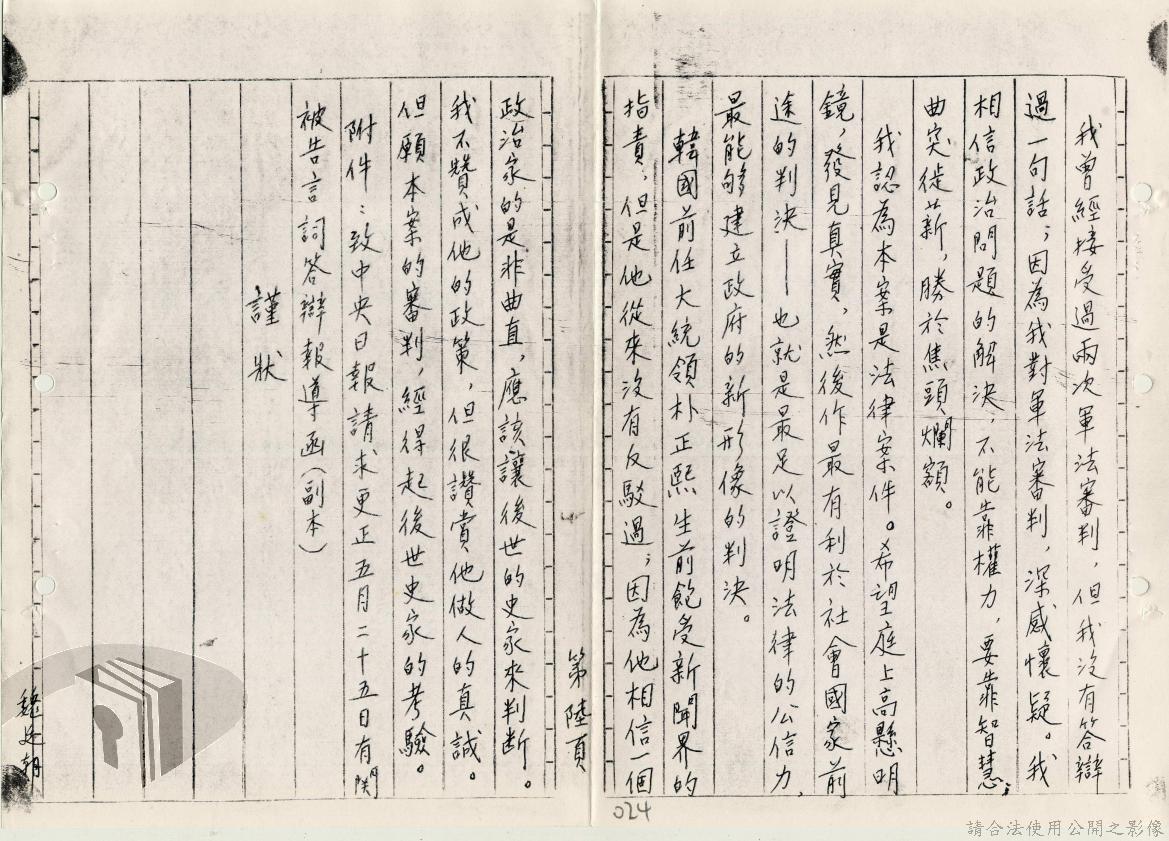 我曾經接受過兩次軍法審判，但我沒有答辯
過一句話；因為我對軍法審判，深感懷疑。我
相信政治問題的解決，不能靠權力，要靠智慧；
曲突徙薪，勝於焦頭爛額。
我認為本案是法律案件。希望庭上高懸明
鏡，發見真實，然後作最有利於社會國家前
途的判決——也就是最足以證明法律的公信力，
最能够建立政府的新形像的判決。
韓國前任大統領朴正熙生前飽受新聞界的
指責，但是他從來沒有反駁過；因為他相信一個
第陸頁
政治家的是非曲直，應該讓後世的史家來判斷。
我不贊成他的政策，但很讚賞他做人的真誠。
但願本案的審判，經得起後世史家的考驗。
附件：致中央日報請求更正五月二十五日有關
被告言詞答辯報導函（副本）
謹狀
魏廷朝
024
請合法使用公開之影像